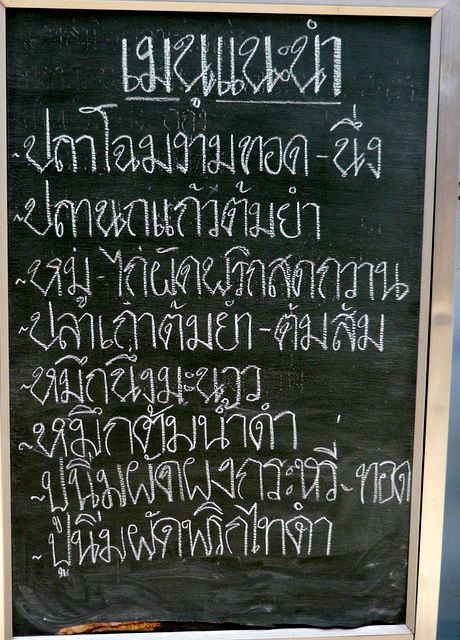 เมนูแนะนำ
~ปลาโฉมงามทอด-นึ่ง
~ปลานกแก้วต้มยำ
~หมู-ไก่ผัดพริกสดกวาน
~ปลาเก๋าต้มยำ-ต้มส้ม
~หมึกนึ่งมะนาว
~หมึกต้มน้ำดำ
~ปูนิ่มผัดผงกระหรี่-ทอด
~ปูนิ่มผัดพริกไทดำ